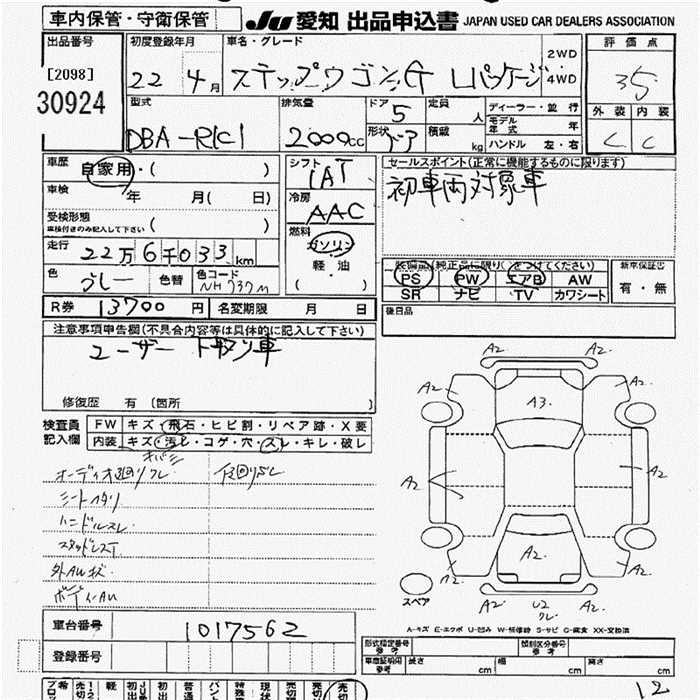 車内保管・守衛保管
JU 愛知 出品申込書 JAPAN USED CAR DEALERS ASSOCIATION
出品番号
[2098]
30924
初度登録年月
22 4月
車名・グレード
ステップワゴン G Lパッケージ
2WD
4WD
評価点
3.5
外装 内装
C C
型式
DBA-RK1
排気量
2000cc
ドア 5
形状 ドア
定員 人
積載 kg
ディーラー・並行
モデル年式 年
ハンドル 左・右
車歴 自家用・( )
車検 年 月( 日)
受検形態
車検付きのみ記入して下さい ( )
走行 22万6千033km
色 グレー 色替 色コード NH737M
シフト
IAT
冷房
AAC
燃料
ガソリン
軽・油
( )
セールスポイント(正常に機能するものに限ります)
初車両対象車
装備品(純正品に限り○をつけてください)
PS PW エアB AW
SR ナビ TV カワシート
新車保証書
有・無
後日品
R券 13700円 名変期限 月 日
注意事項申告欄(不具合内容等は具体的に記入して下さい)
ユーザー 下取り車
修復歴 有 (箇所 )
検査員記入欄
FW キズ・飛石・ヒビ割・リペア跡・X要
内装 キズ・汚レ・コゲ・穴・スレ・キレ・破レ
オーディオ回りクレ
シートヘタリ
ハンドルスレ
スタッドレスT
外AU状
ボディAU
A2. A2.
A2 A2.
A3.
A2 A2.
A2.
A2. A2.
A2 U2 A2.
クレ
スペア
A-キズ E-エクボ U-凹み W-補修跡 S-サビ C-腐食 XX-交換済
車台番号 1017562
登録番号
形式指定番号 参考
類別区分番号 参考
車庫証明用 参考 長さ cm 幅 cm 高さ cm
12